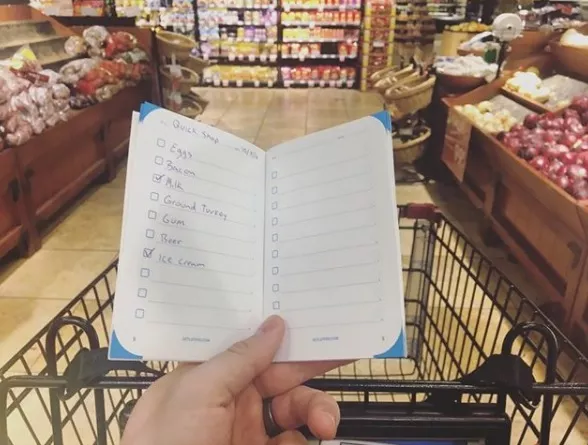 Quick Shop
Eggs
Bacon
Milk
Ground Turkey
Gum
Beer
Ice Cream